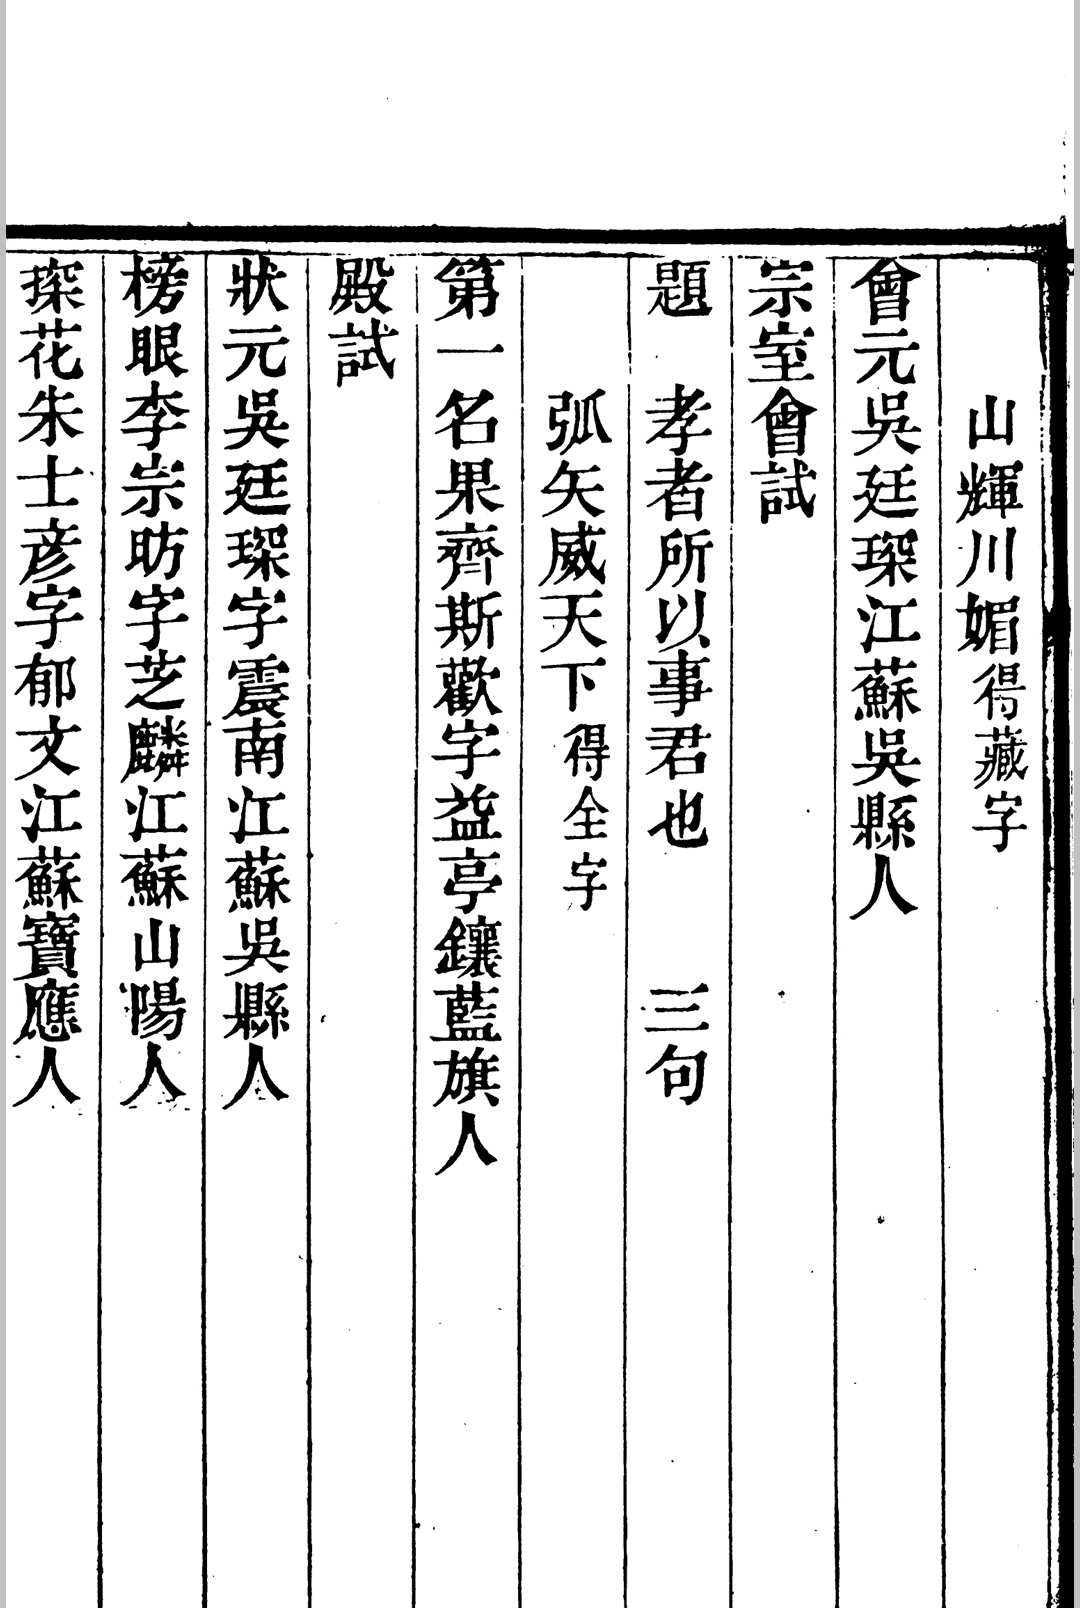 山輝川媚得藏字
會元吳廷琛江蘇吳縣人
宗室會試
題　孝者所以事君也　三句
弧矢威天下得全字
第一名果齊斯歡字益亭鑲藍旗人
殿試
狀元吳廷琛字震南江蘇吳縣人
榜眼李宗昉字芝麟江蘇山陽人
探花朱士彥字郁文江蘇寶應人